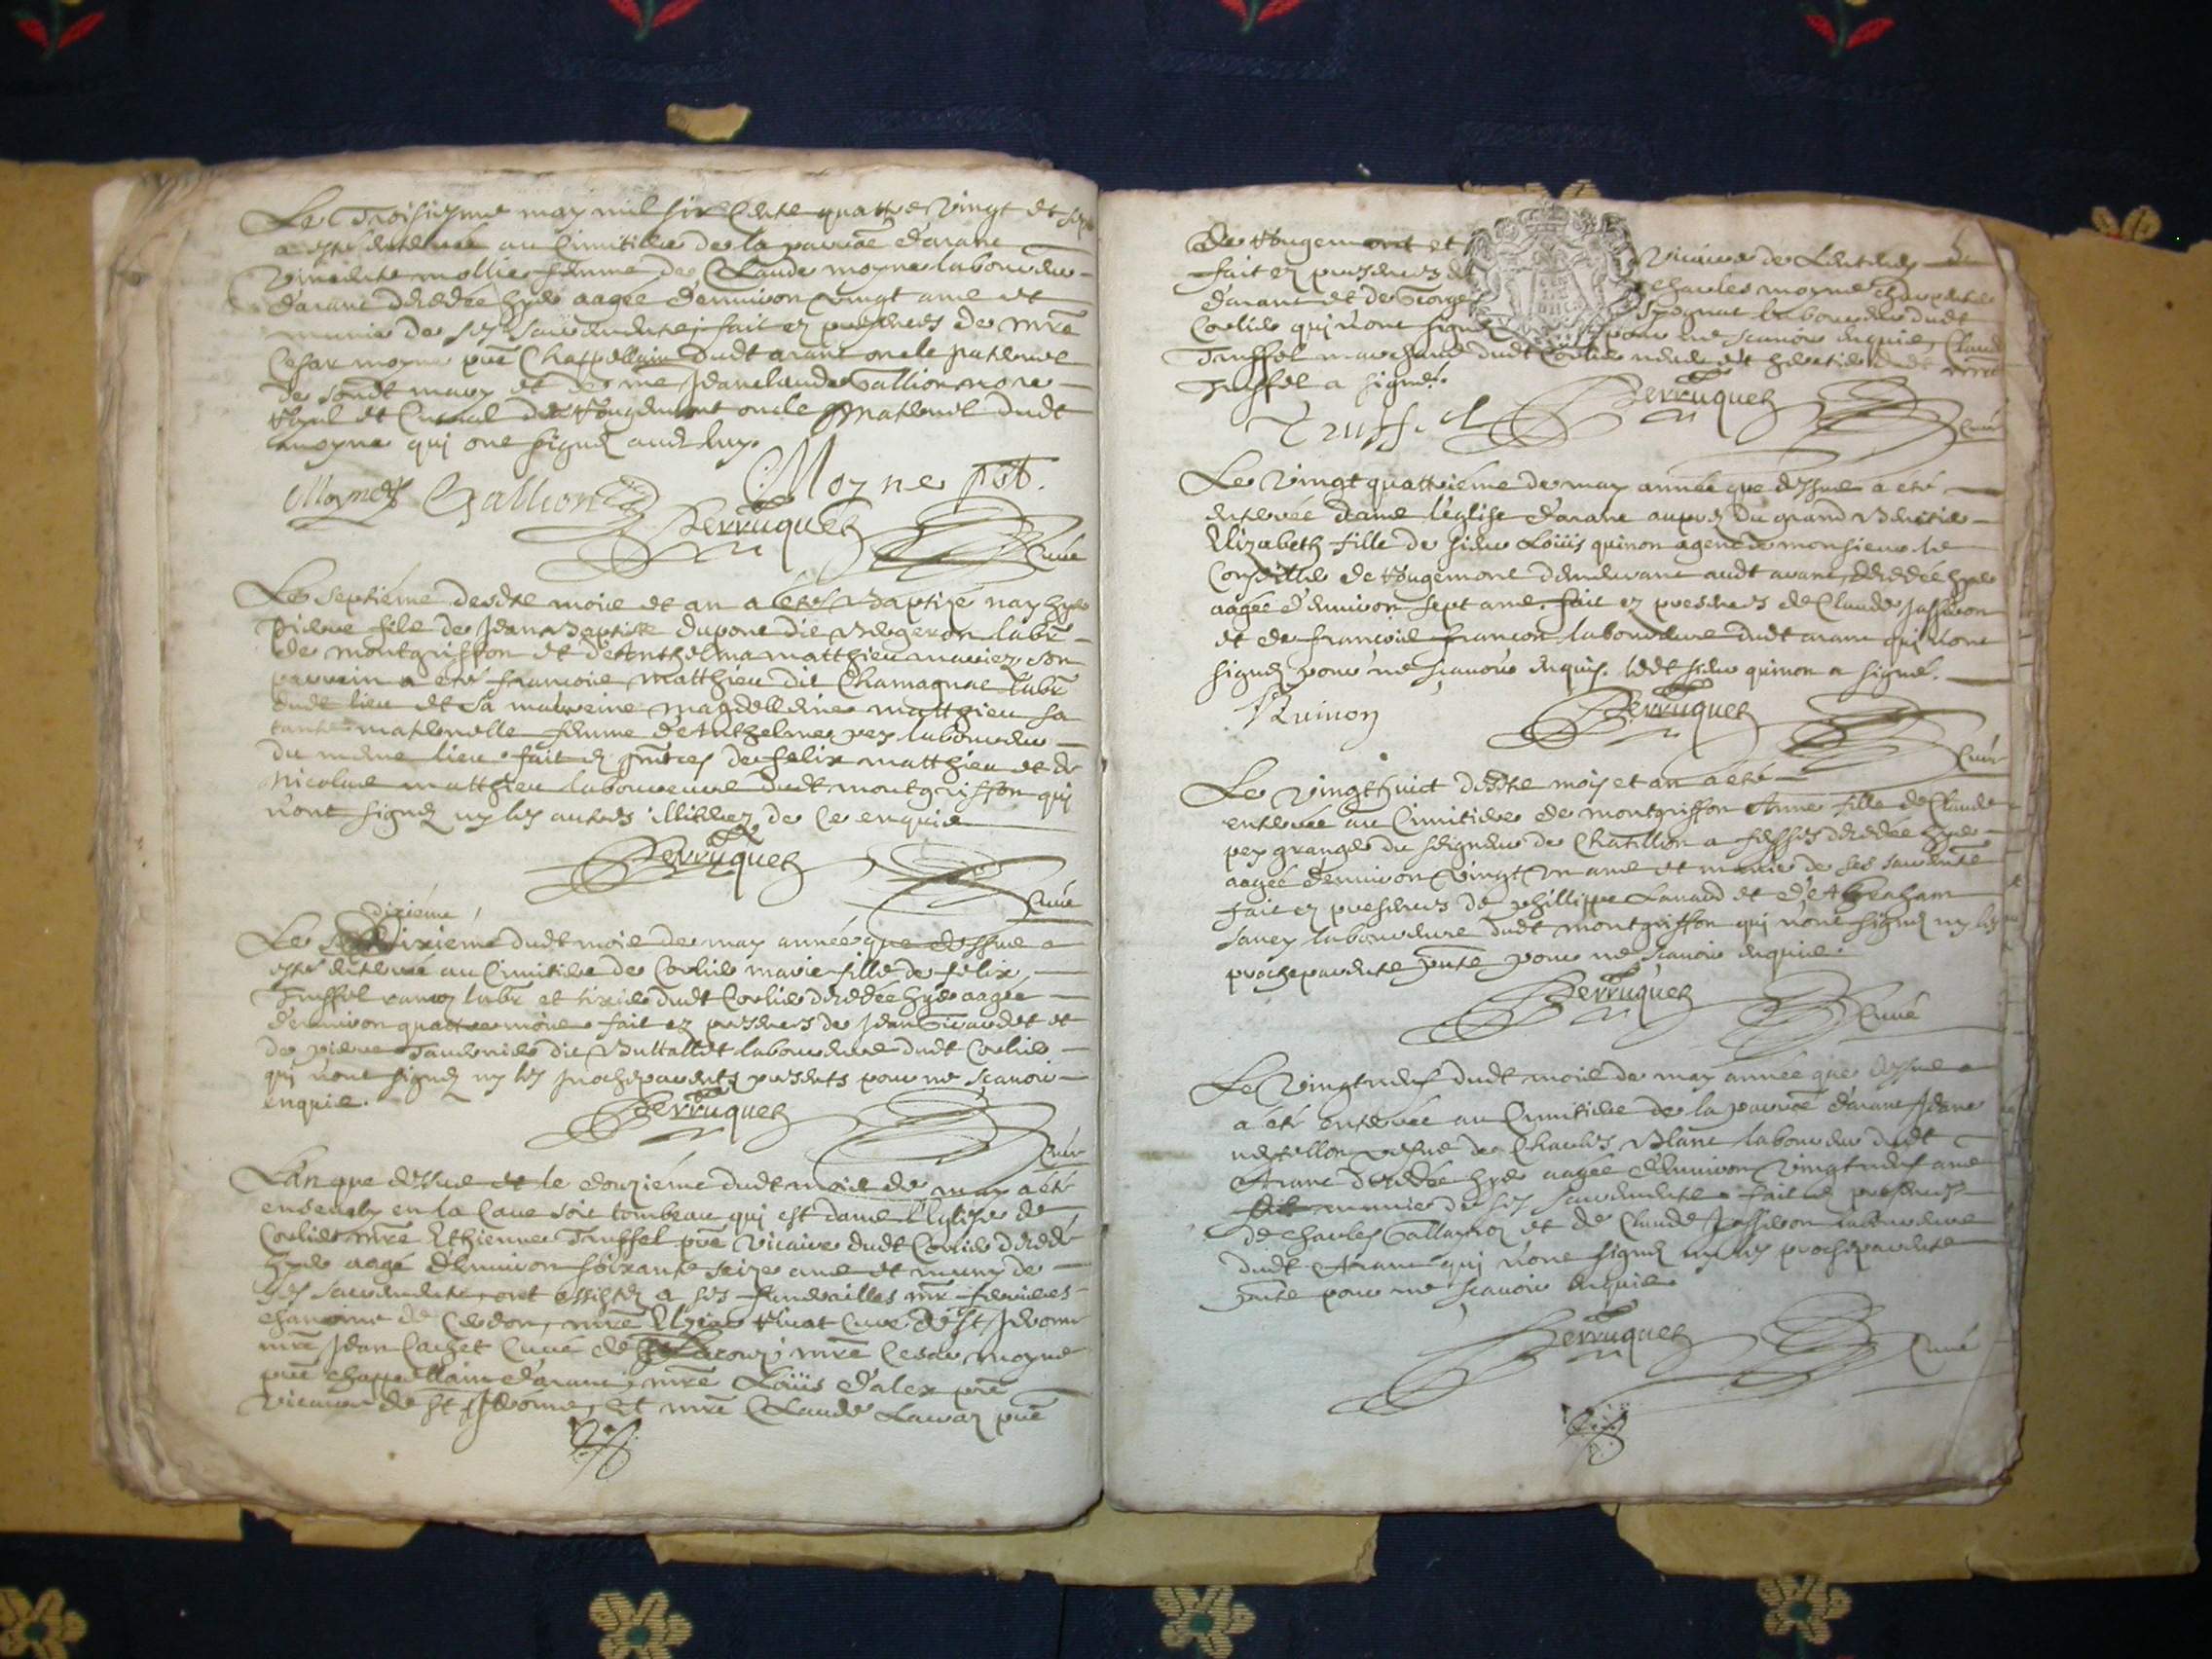 Le Troisiesme may mil six Cents quattre Vingt et sept
a esté enterrée au Cimitiere de la parroê d'aranc
mollie femme de Claude moyne laboureur
d'aranc decedée hyer aagée d'environ vingt ans et
munie de ses sacrements, fait ez presences de mre
Cesar moyne prê Chappellain dudt aranc oncle paternel
de sondt mary et de me Jeanclaude Gallion notre
Royal et Curial de Rougemont oncle maternel dudt
moyne qui ont signez avec luy.
Moyne Gallion Moyne pbt.
Perruquet Curé
Le septiéme desdts mois et an a été Baptizé nay hyer
Pierre fils de Jean Baptiste dupont dit Bergeron labr
de montgriffon et d'Anthelma matthieu mariez, son
parrein a eté francois Matthieu dit Chamagnat labr
dudt lieu et sa marreine magdelleine matthieu sa
tante maternelle femme d'Anthelme pey laboureur
du mesme lieu. fait ez pntces de felix matthieu et de
Nicolas matthieu laboureurs dudt montgriffon qui
n'ont signez ny les autres illittrez de ce enquis
Perruquet Curé
dixiéme
Le dixiéme dudt mois de may année que dessus a
esté enterrée au Cimitiere de Corlier marie fille de felix
Truffel labr et dudt Corlier decedée hyer aagée
d'environ quattre mois fait ez presences de Jean Girardet et
de pierre Tavernier dit Buttallet laboureurs dudt Corlier
qui n'ont signez ny les procheparents presents pour ne scavoir
enquis.
Perruquet Curé
L'An que dessus et le douziéme dudt mois de may a eté
ensevely en la Cave soit tombeau qui est dans l'Eglise de
Corlier mre Ethienne Truffel prê Vicaire dudt Corlier decedé
hyer aagé d'environ soixante seize ans et muny de
ses sacrements, ont assistez a ses funerailles mre
chanoine de Cerdon, mre Curé de St Jerome
mre Jean Cachet Curé de mre Cesar moyne
prê chappellain d'aranc, mre Loüis d'alex prê
Vicaire de St Jérome, et mre Claude Lavaz prê
de Rougemont et Vicaire de
fait ez presences de Charles moyne
d'aranc et de George laboureurs dudt
Corlier qui n'ont signez pour ne scavoir enquis, Claude
Truffel marchand dudt Corlier neveu et heritier dudt mre
Truffel a signé.
Truffel Perruquet Curé
Le Vingt quattriéme de may année que dessus a eté
enterrée dans l'église d'aranc auprez du grand Benitier
Elizabeth fille de sieur Loüis quinon agent de monsieur le
Conseiller de Rougemont demeurant audt aranc, decedée hyer
aagée d'environ sept ans. fait ez presences de Claude Josseron
et de françois françon laboureurs dudt aranc qui n'ont
signez pour ne sçavoir enquis. ledt sieur quinon a signé.
Quinon Perruquet Curé
Le Vingthuict desdts mois et an a eté
enterrée au Cimitiere de montgriffon Anne fille de Claude
pey granger du seigneur de Chatillon a decedée hyer
aagée d'environ Vingt un ans et munie de ses sacrements
fait ez presences de phillippe Lavaud et d'Abraham
Savey laboureurs dudt montgriffon qui n'ont signez ny les
procheparents pnts pour ne scavoir enquis.
Perruquet Curé
Le Vingtneuf dudt mois de may année que dessus
a été enterrée au Cimitiere de la parroê d'aranc Jeane
vefve de Charles Blanc laboureur dudt
Aranc decedée hyer aagée d'environ Vingtneuf ans
munie de ses sacrements, fait ez presences
de Charles et de Claude Josseron laboureurs
dudt Aranc qui n'ont signez ny les procheparents
pnts pour ne scavoir enquis
Perruquet Curé